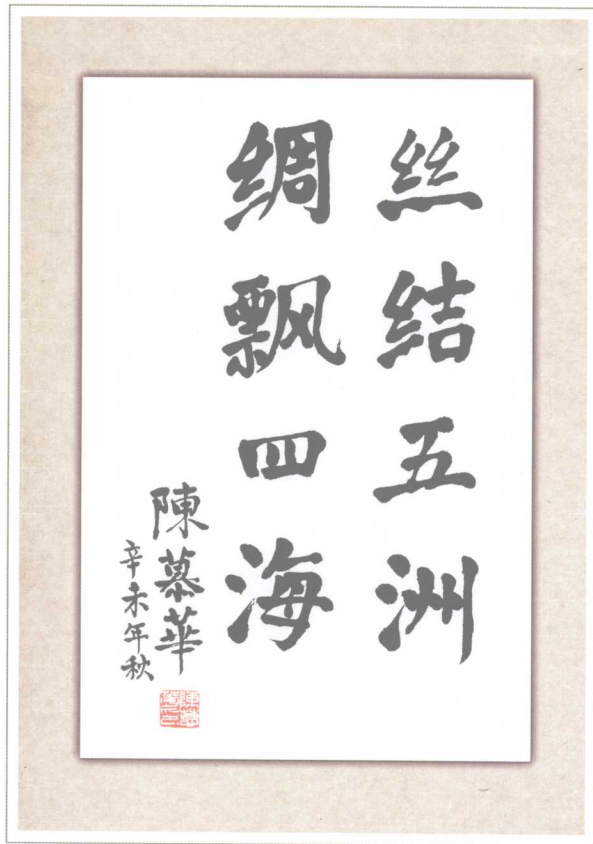 丝结五洲
绸飘四海
陳慕華
辛未年秋